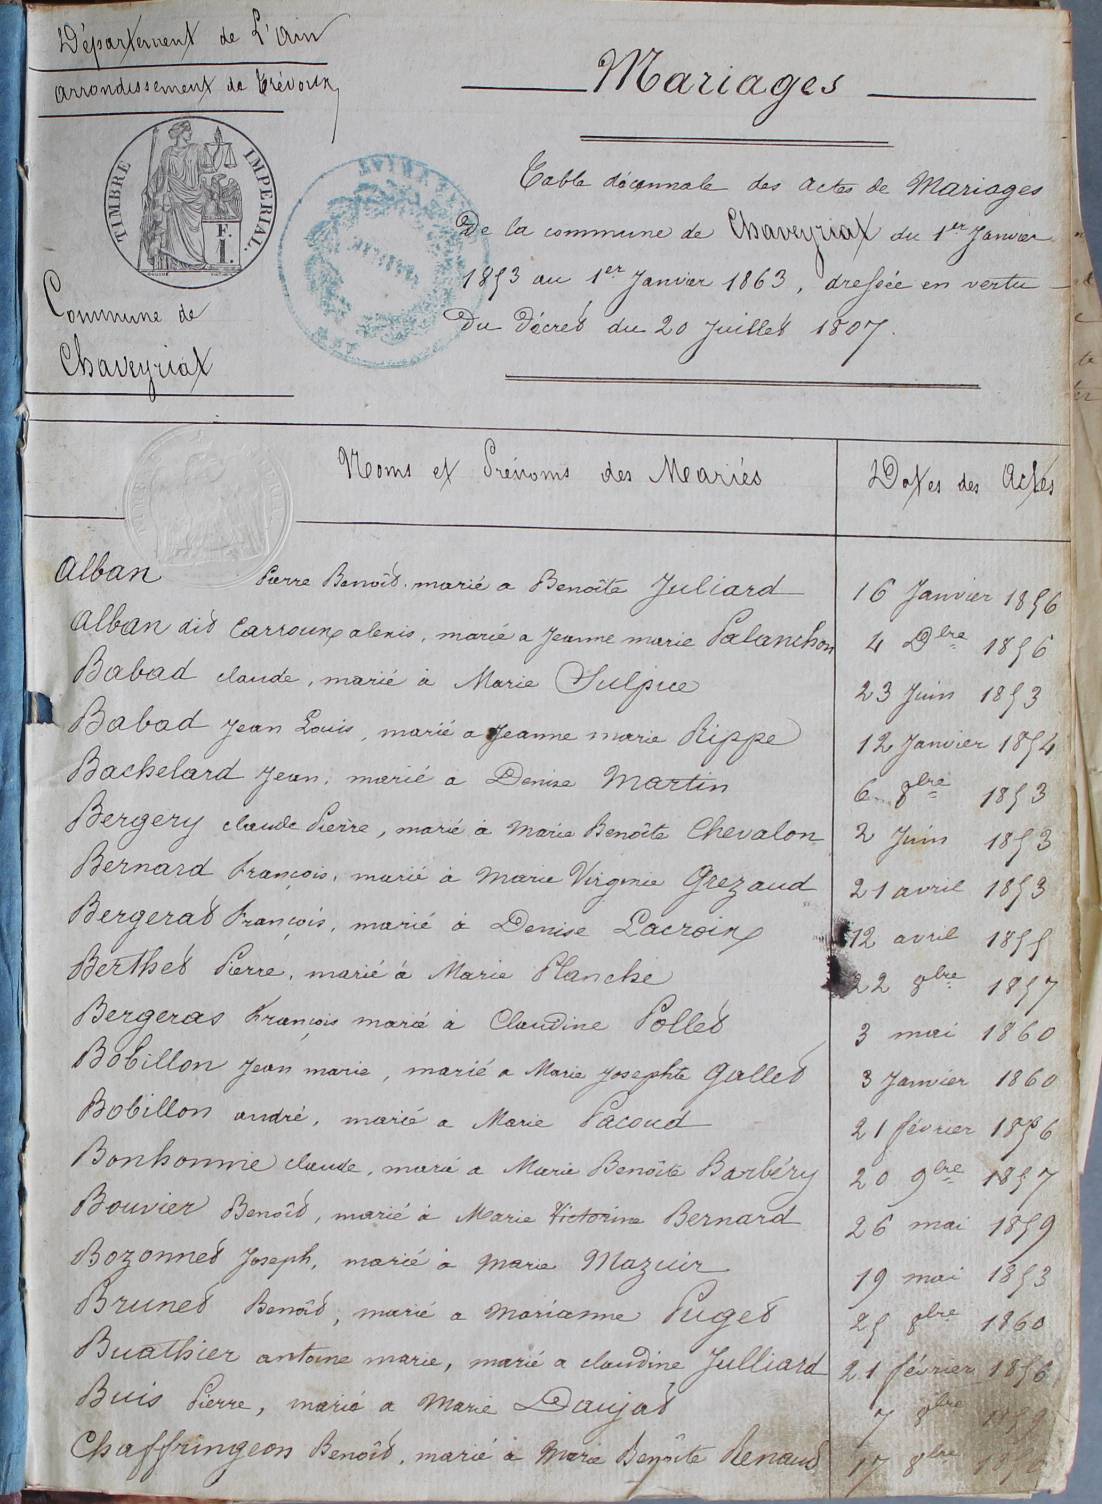 Département de L'Ain
arrondissement de Trévoux
TIMBRE IMPERIAL.
F.
1.
Commune de
Chaveyriat
Mariages
Table décennale des actes de Mariages
De la commune de Chaveyriat du 1er Janvier
1853 au 1er Janvier 1863, dressée en vertu
Du Décret du 20 Juillet 1807.
Noms et Prénoms des Mariés Dates des Actes
Alban Pierre Benoît. marié a Benoîte Juliard 16 Janvier 1856
Alban dit Carroux alexis, marié a Jeanne marie Palanchon 4 Dbre 1856
Babad claude, marié à Marie Sulpice 23 Juin 1853
Babad Jean Louis, marié a Jeanne marie Rippe 12 Janvier 1854
Bachelard Jean, marié a Denise Martin 6 8bre 1853
Bergery claude Pierre, marié à Marie Benoîte Chevalon 2 Juin 1853
Bernard François, marié à Marie Virginie Grezaud 21 avril 1853
Bergerat François, marié à Denise Lacroix 12 avril 1855
Berthet Pierre, marié à Marie Planche 22 8bre 1857
Bergeras François marié à Claudine Pollet 3 mai 1860
Bobillon Jean marie, marié a Marie Josephte Gallet 3 Janvier 1860
Bobillon andré, marié a Marie Pacoud 21 février 1856
Bonhomme claude, marié a Marie Benoîte Barbéry 20 9bre 1857
Bouvier Benoît, marié à Marie Victorine Bernard 26 mai 1859
Bozonnet Joseph, marié à Marie Mazuir 19 mai 1853
Brunet Benoît, marié a Marianne Puget 25 8bre 1860
Buathier antoine marie, marié a claudine Julliard 21 février 1856
Buis Pierre, marié a Marie Daujat 7 8bre 1859
Chaffringeon Benoît, marié à Marie Benoîte Renaud 17 8bre